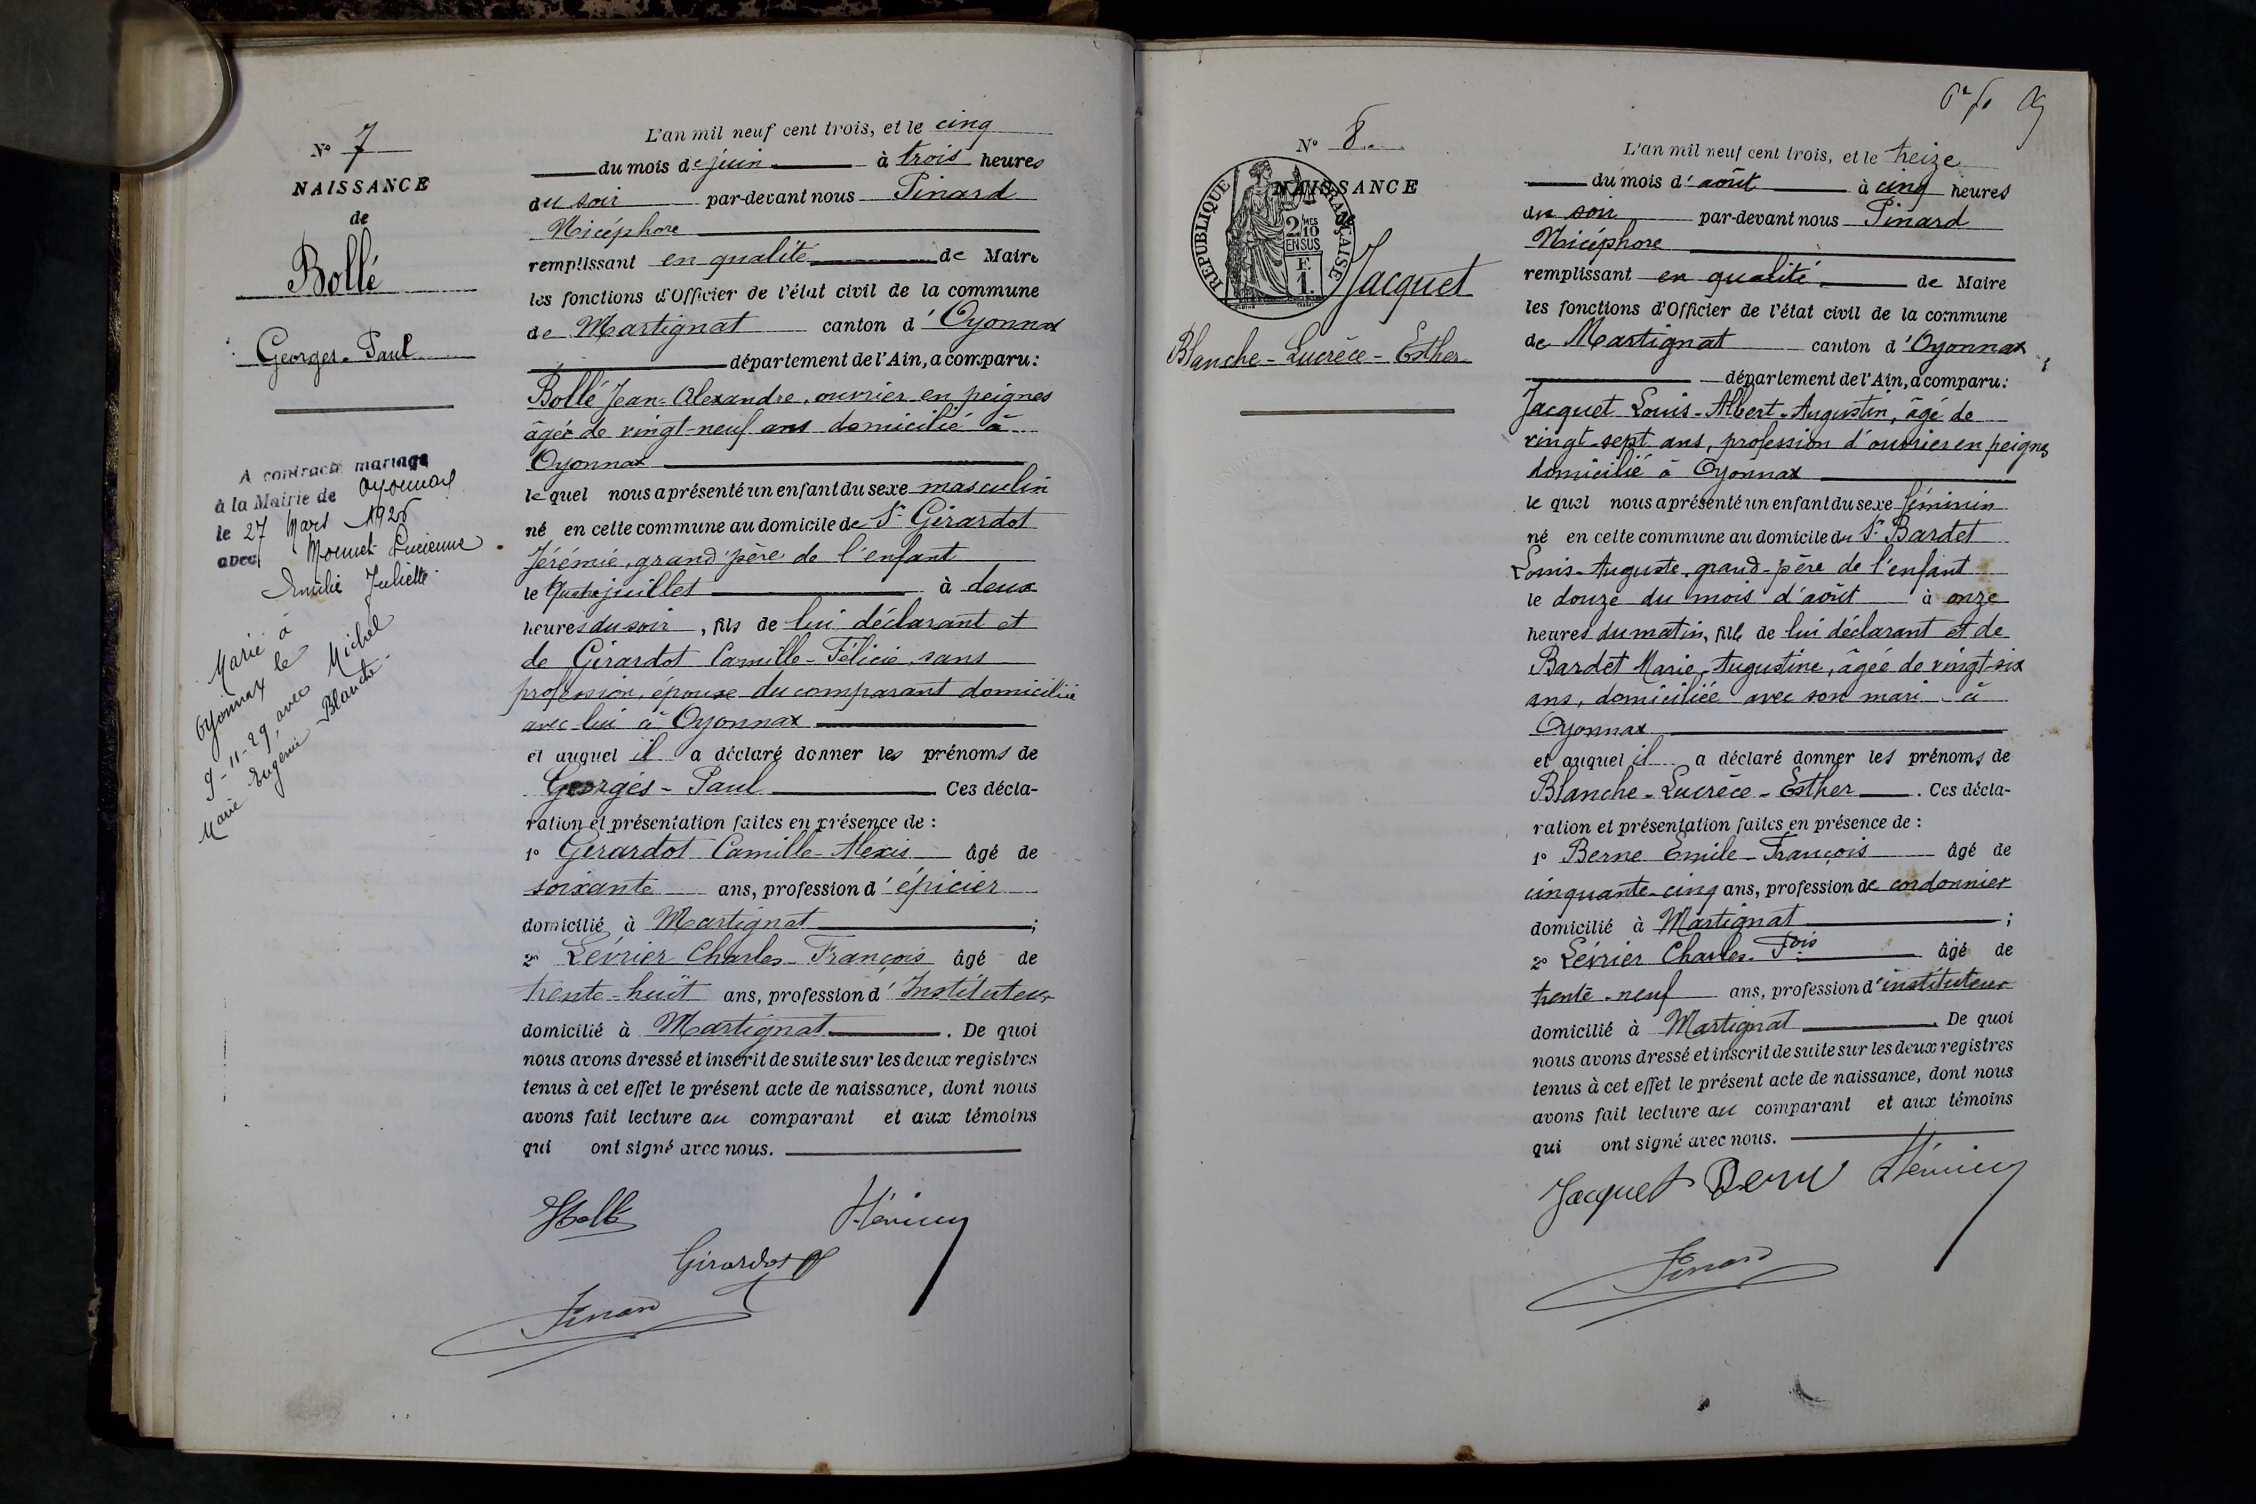 N° 7
NAISSANCE
de
Bollé
Georges-Paul
A contracté mariage
à la Mairie de Oyonnax
le 27 Mars 1926
avec Monnet Lucienne
Emilie Juliette.
Marié à
Oyonnax le
9-11-29, avec Michel
Marie Eugénie Blanche.
L'an mil neuf cent trois, et le cinq
du mois de juin à trois heures
du soir par-devant nous Pinard
Nicéphore
remplissant en qualité de Maire
les fonctions d'Officier de l'état civil de la commune
de Martignat canton d'Oyonnax
département de l'Ain, a comparu:
Bollé Jean-Alexandre, ouvrier en peignes
âgé de vingt-neuf ans domicilié à
Oyonnax
lequel nous a présenté un enfant du sexe masculin
né en cette commune au domicile de Sr Girardot
Jérémie, grand'père de l'enfant
le quatre juillet à deux
heures du soir, fils de lui déclarant et
de Girardot Camille-Félicie, sans
profession, épouse du comparant domiciliée
avec lui à Oyonnax
et auquel il a déclaré donner les prénoms de
Georges-Paul Ces décla-
ration et présentation faites en présence de :
1° Girardot Camille-Alexis âgé de
soixante ans, profession d'épicier
domicilié à Martignat ;
2° Lévrier Charles-François âgé de
trente-huit ans, profession d'Instituteur
domicilié à Martignat. De quoi
nous avons dressé et inscrit de suite sur les deux registres
tenus à cet effet le présent acte de naissance, dont nous
avons fait lecture au comparant et aux témoins
qui ont signé avec nous.
Bollé Lévrier
Girardot
Pinard
N° 8.
NAISSANCE
de
REPUBLIQUE FRANÇAISE
2/10 EN SUS
F. 1.
Jacquet
Blanche-Lucrèce-Esther
L'an mil neuf cent trois, et le treize
du mois d'août à cinq heures
du soir par-devant nous Pinard
Nicéphore
remplissant en qualité de Maire
les fonctions d'Officier de l'état civil de la commune
de Martignat canton d'Oyonnax
département de l'Ain, a comparu:
Jacquet Louis-Albert-Augustin, âgé de
vingt-sept ans, profession d'ouvrier en peignes
domicilié à Oyonnax
lequel nous a présenté un enfant du sexe féminin
né en cette commune au domicile du Sr Bardet
Louis-Auguste, grand-père de l'enfant
le douze du mois d'août à onze
heures du matin, fille de lui déclarant et de
Bardet Marie-Augustine, âgée de vingt-six
ans, domiciliée avec son mari à
Oyonnax
et auquel il a déclaré donner les prénoms de
Blanche-Lucrèce-Esther. Ces décla-
ration et présentation faites en présence de :
1° Berne Emile-François âgé de
cinquante-cinq ans, profession de cordonnier
domicilié à Martignat ;
2° Lévrier Charles-Fois âgé de
trente-neuf ans, profession d'instituteur
domicilié à Martignat. De quoi
nous avons dressé et inscrit de suite sur les deux registres
tenus à cet effet le présent acte de naissance, dont nous
avons fait lecture au comparant et aux témoins
qui ont signé avec nous.
Jacquet Berne Lévrier
Pinard